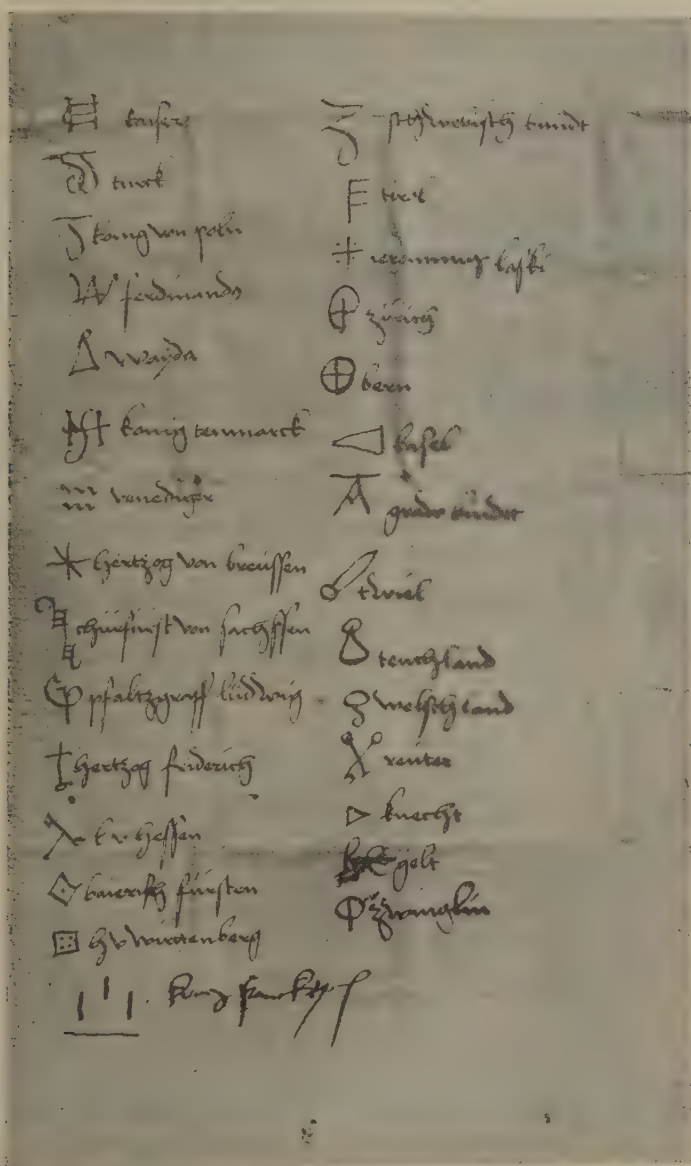 kaiser
turck
konig von poln
ferdinando
wayda
konig tenmarck
venediger
hertzog von breussen
churfurst von sachssen
pfaltzgraff ludwig
hertzog friderich
l v hessen
baierisch fursten
h v wirttenberg
kunig franckrich
schwebisch bundt
tirol
ieronimus laski
zürich
bern
basel
grawe bundt
twiel
teuchland
welschland
reuter
knecht
gelt
zwinglin